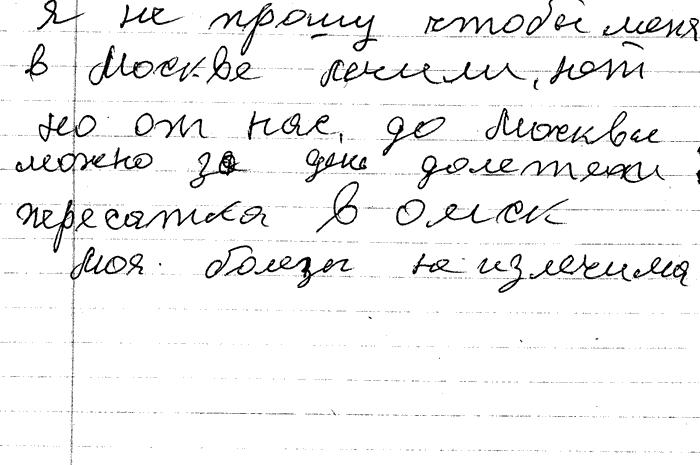 я не прошу чтобы меня
в Москве лечили, нет
но от нас, до Москвы
можно за день долететь
пересатка в омск
моя болезь не излечима